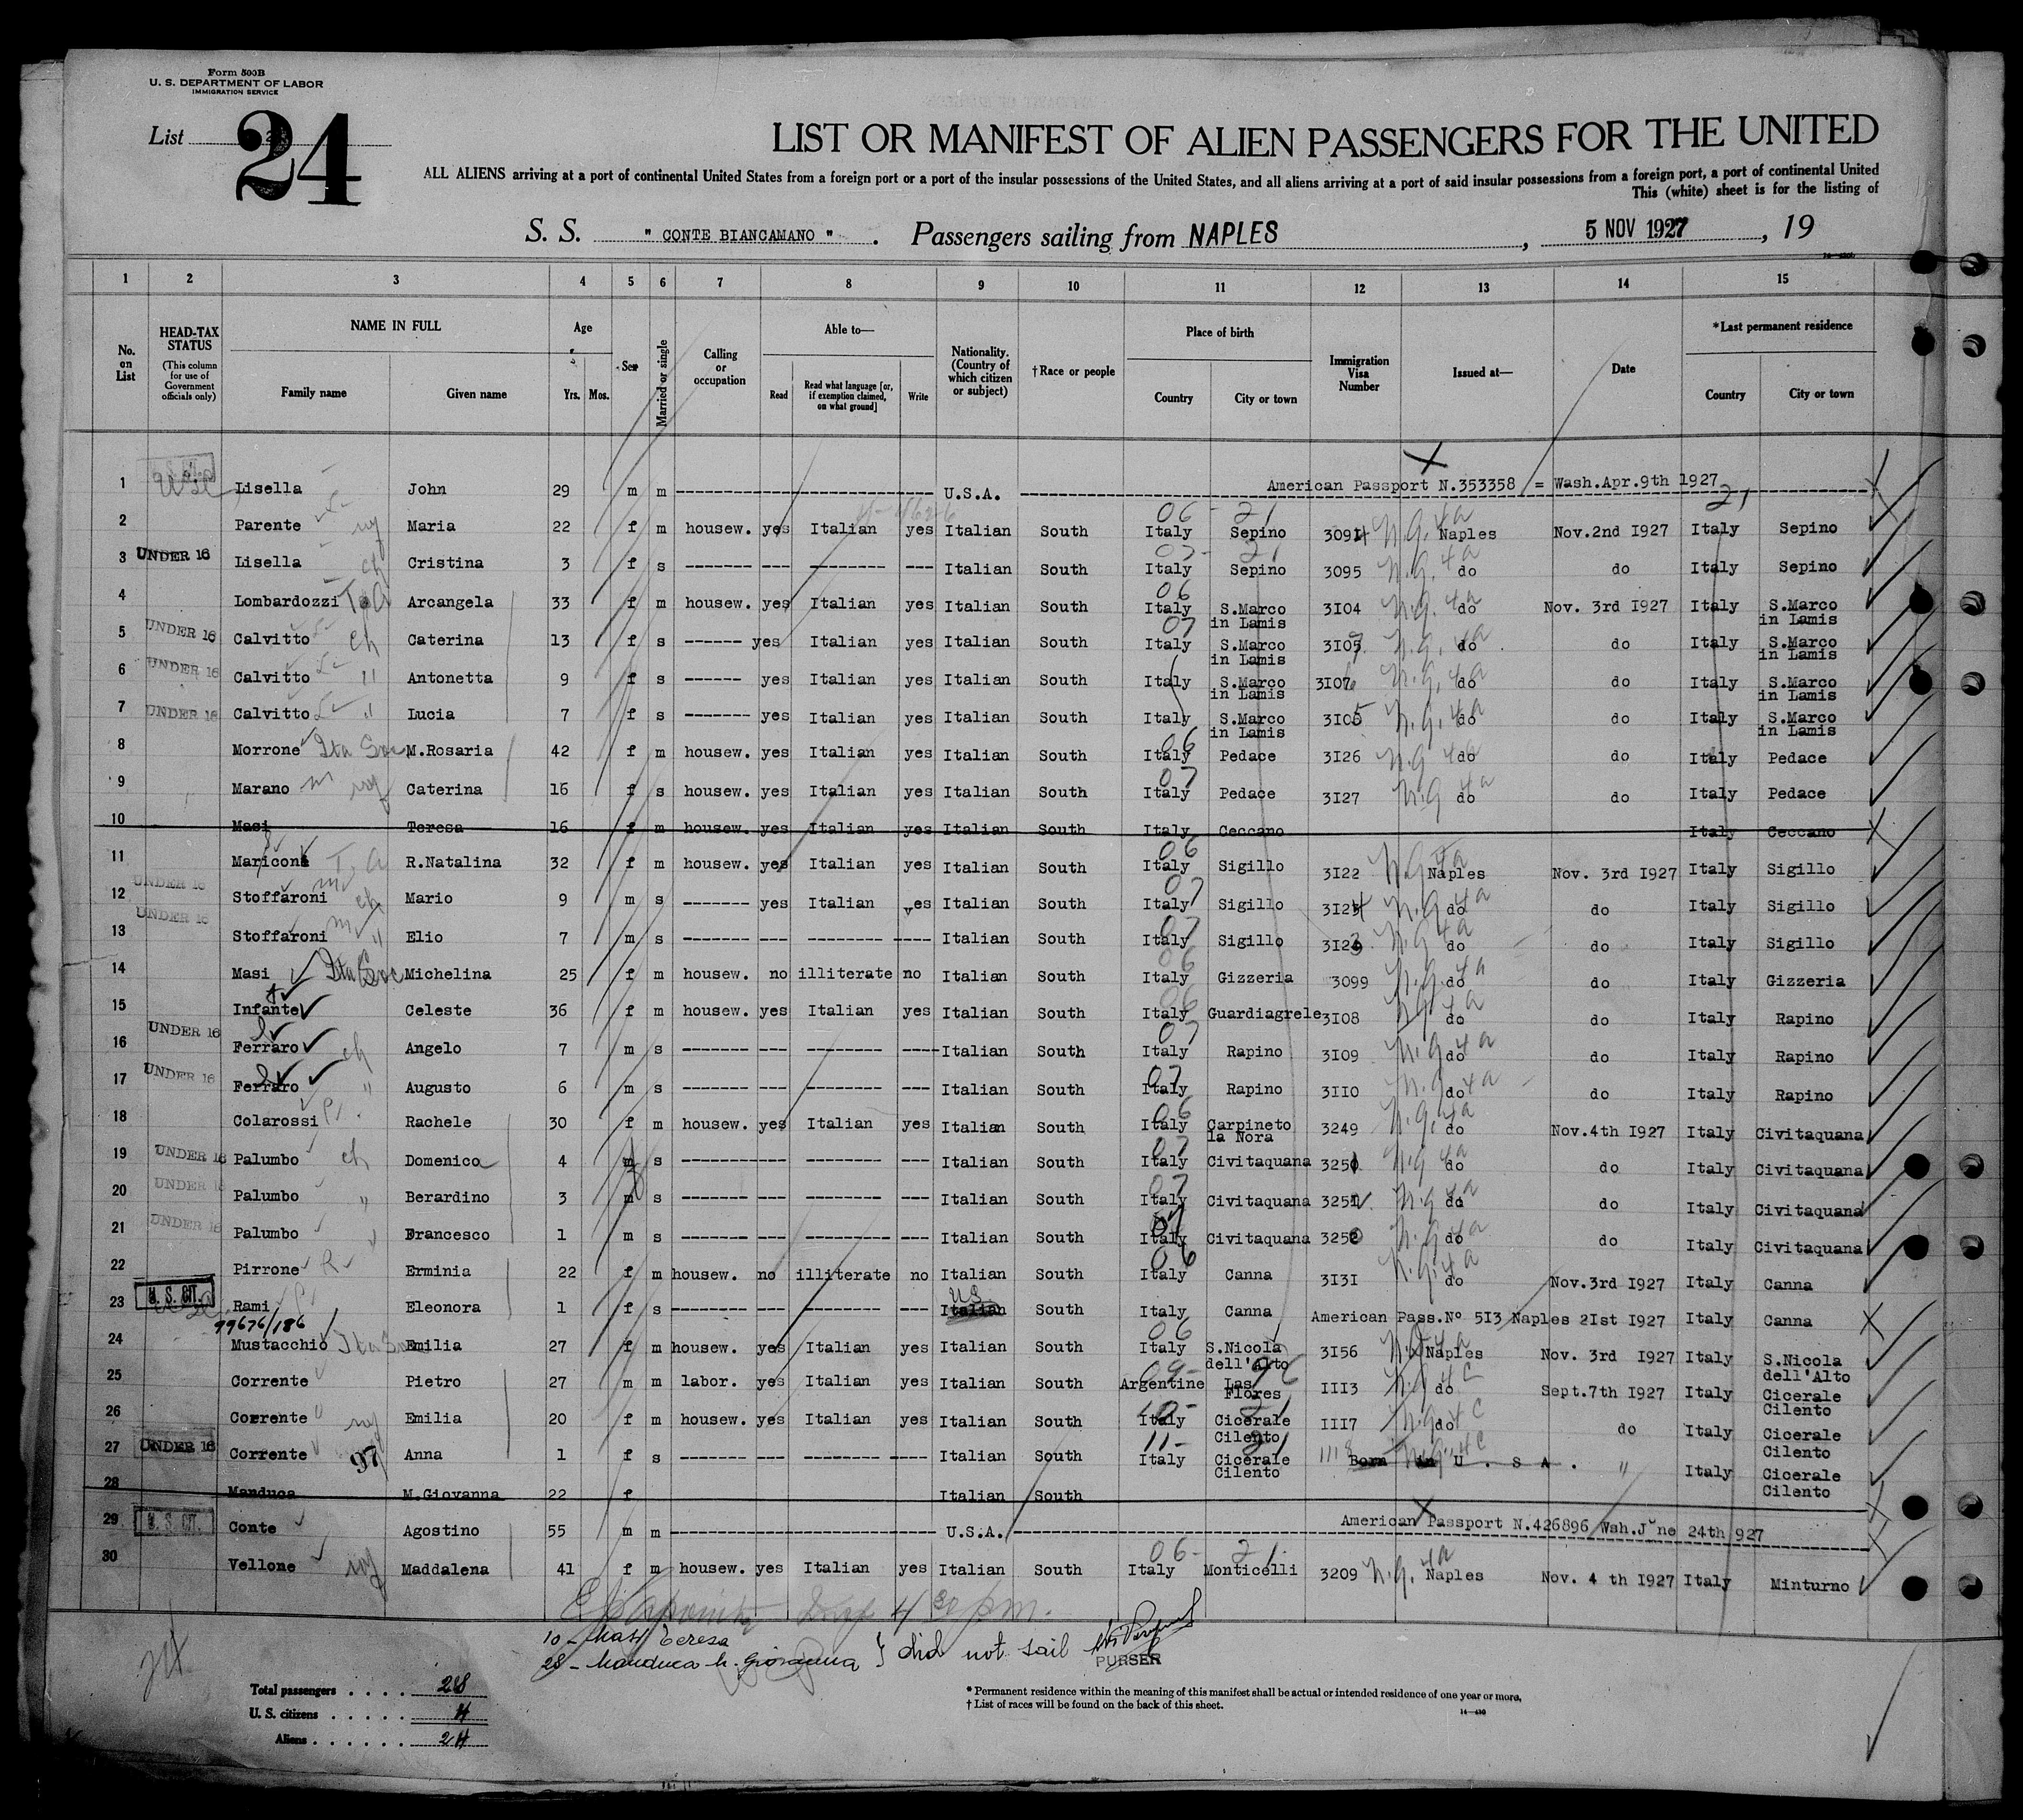 Form 500B
U. S. DEPARTMENT OF LABOR
IMMIGRATION SERVICE
List 24
LIST OR MANIFEST OF ALIEN PASSENGERS FOR THE UNITED
ALL ALIENS arriving at a port of continental United States from a foreign port or a port of the insular possessions of the United States, and all aliens arriving at a port of said insular possessions from a foreign port, a port of continental United
This (white) sheet is for the listing of
S. S. " CONTE BIANCAMANO " . Passengers sailing from NAPLES , 5 NOV 1927 , 19
1 2 3 4 5 6 7 8 9 10 11 12 13 14 15
No. on List
HEAD-TAX STATUS (This column for use of Government officials only)
NAME IN FULL Family name Given name
Age Yrs. Mos.
Sex
Married or single
Calling or occupation
Able to— Read Read what language [or, if exemption claimed, on what ground] Write
Nationality. (Country of which citizen or subject)
†Race or people
Place of birth Country City or town
Immigration Visa Number
Issued at—
Date
*Last permanent residence Country City or town
1 Lisella John 29 m m U.S.A. American Passport N.353358 = Wash.Apr.9th 1927
2 Parente Maria 22 f m housew. yes Italian yes Italian South Italy Sepino 3094 N.g. 4a Naples Nov.2nd I927 Italy Sepino
3 UNDER 16 Lisella Cristina 3 f s Italian South Italy Sepino 3095 N.g. 4a do do Italy Sepino
4 Lombardozzi Arcangela 33 f m housew. yes Italian yes Italian South Italy S.Marco in Lamis 3I04 N.g. 4a do Nov. 3rd I927 Italy S.Marco in Lamis
5 UNDER 16 Calvitto ch Caterina 13 f s yes Italian yes Italian South Italy S.Marco in Lamis N.g. 4a do do Italy S.Marco in Lamis
6 UNDER 16 Calvitto " Antonetta 9 f s yes Italian yes Italian South Italy S.Marco in Lamis N.g. 4a do do Italy S.Marco in Lamis
7 UNDER 16 Calvitto " Lucia 7 f s yes Italian yes Italian South Italy S.Marco in Lamis 3I05 N.g. 4a do do Italy S.Marco in Lamis
8 Morrone M.Rosaria 42 f m housew. yes Italian yes Italian South Italy Pedace 3I26 N.g 4a do do Italy Pedace
9 Marano Caterina 16 f s housew. yes Italian yes Italian South Italy Pedace 3I27 N.g 4a do do Italy Pedace
10 Masi Teresa 16 f m housew. yes Italian yes Italian South Italy Ceccano Italy Ceccano
11 Maricone R.Natalina 32 f m housew. yes Italian yes Italian South Italy Sigillo 3I22 N.g 4a Naples Nov. 3rd I927 Italy Sigillo
12 UNDER 16 Stoffaroni ch Mario 9 m s yes Italian yes Italian South Italy Sigillo 3I24 N.g 4a do do Italy Sigillo
13 UNDER 16 Stoffaroni " Elio 7 m s Italian South Italy Sigillo 3I23 N.g 4a do do Italy Sigillo
14 Masi Michelina 25 f m housew. no illiterate no Italian South Italy Gizzeria 3099 N.g. 4a do do Italy Gizzeria
15 Infante Celeste 36 f m housew. yes Italian yes Italian South Italy Guardiagrele 3I08 N.g 4a do do Italy Rapino
16 UNDER 16 Ferraro ch Angelo 7 m s Italian South Italy Rapino 3I09 N.g 4a do do Italy Rapino
17 UNDER 16 Ferraro " Augusto 6 m s Italian South Italy Rapino 3II0 N.g. 4a do do Italy Rapino
18 Colarossi Rachele 30 f m housew. yes Italian yes Italian South Italy Carpineto la Nora 3249 N.g. 4a do Nov.4th I927 Italy Civitaquana
19 UNDER 16 Palumbo ch Domenica 4 f s Italian South Italy Civitaquana N.g 4a do do Italy Civitaquana
20 UNDER 16 Palumbo " Berardino 3 m s Italian South Italy Civitaquana N.g 4a do do Italy Civitaquana
21 UNDER 16 Palumbo " Francesco 1 m s Italian South Italy Civitaquana N.g 4a do do Italy Civitaquana
22 Pirrone Erminia 22 f m housew. no illiterate no Italian South Italy Canna 3I3I N.g. 4a do Nov.3rd I927 Italy Canna
23 U. S. CIT. Rami Eleonora 1 f s Italian U.S. South Italy Canna American Pass.Nº 5I3 Naples 2Ist I927 Italy Canna
99676/186
24 Mustacchio Emilia 27 f m housew. yes Italian yes Italian South Italy S.Nicola dell'Alto 3I56 N.g 4a Naples Nov. 3rd I927 Italy S.Nicola dell'Alto
25 Corrente Pietro 27 m m labor. yes Italian yes Italian South Argentine Las Flores III3 do Sept.7th I927 Italy Cicerale Cilento
26 Corrente Emilia 20 f m housew. yes Italian yes Italian South Italy Cicerale Cilento III7 do do Italy Cicerale Cilento
27 UNDER 16 Corrente 97 Anna 1 f s Italian South Italy Cicerale Cilento 1118 Born in U . S A . " Italy Cicerale Cilento
28 Manduca M.Giovanna 22 f Italian South
29 U. S. CIT. Conte Agostino 55 m m U.S.A. American Passport N.426896 Wsh.June 24th 927
30 Vellone Maddalena 41 f m housew. yes Italian yes Italian South Italy Monticelli 3209 N.g. 4a Naples Nov. 4 th I927 Italy Minturno
10 - Masi Teresa
28 - Manduca M. Giovanna } did not sail
PURSER
Total passengers . . . . 28
U. S. citizens . . . . . 4
Aliens . . . . . . 24
* Permanent residence within the meaning of this manifest shall be actual or intended residence of one year or more.
† List of races will be found on the back of this sheet.